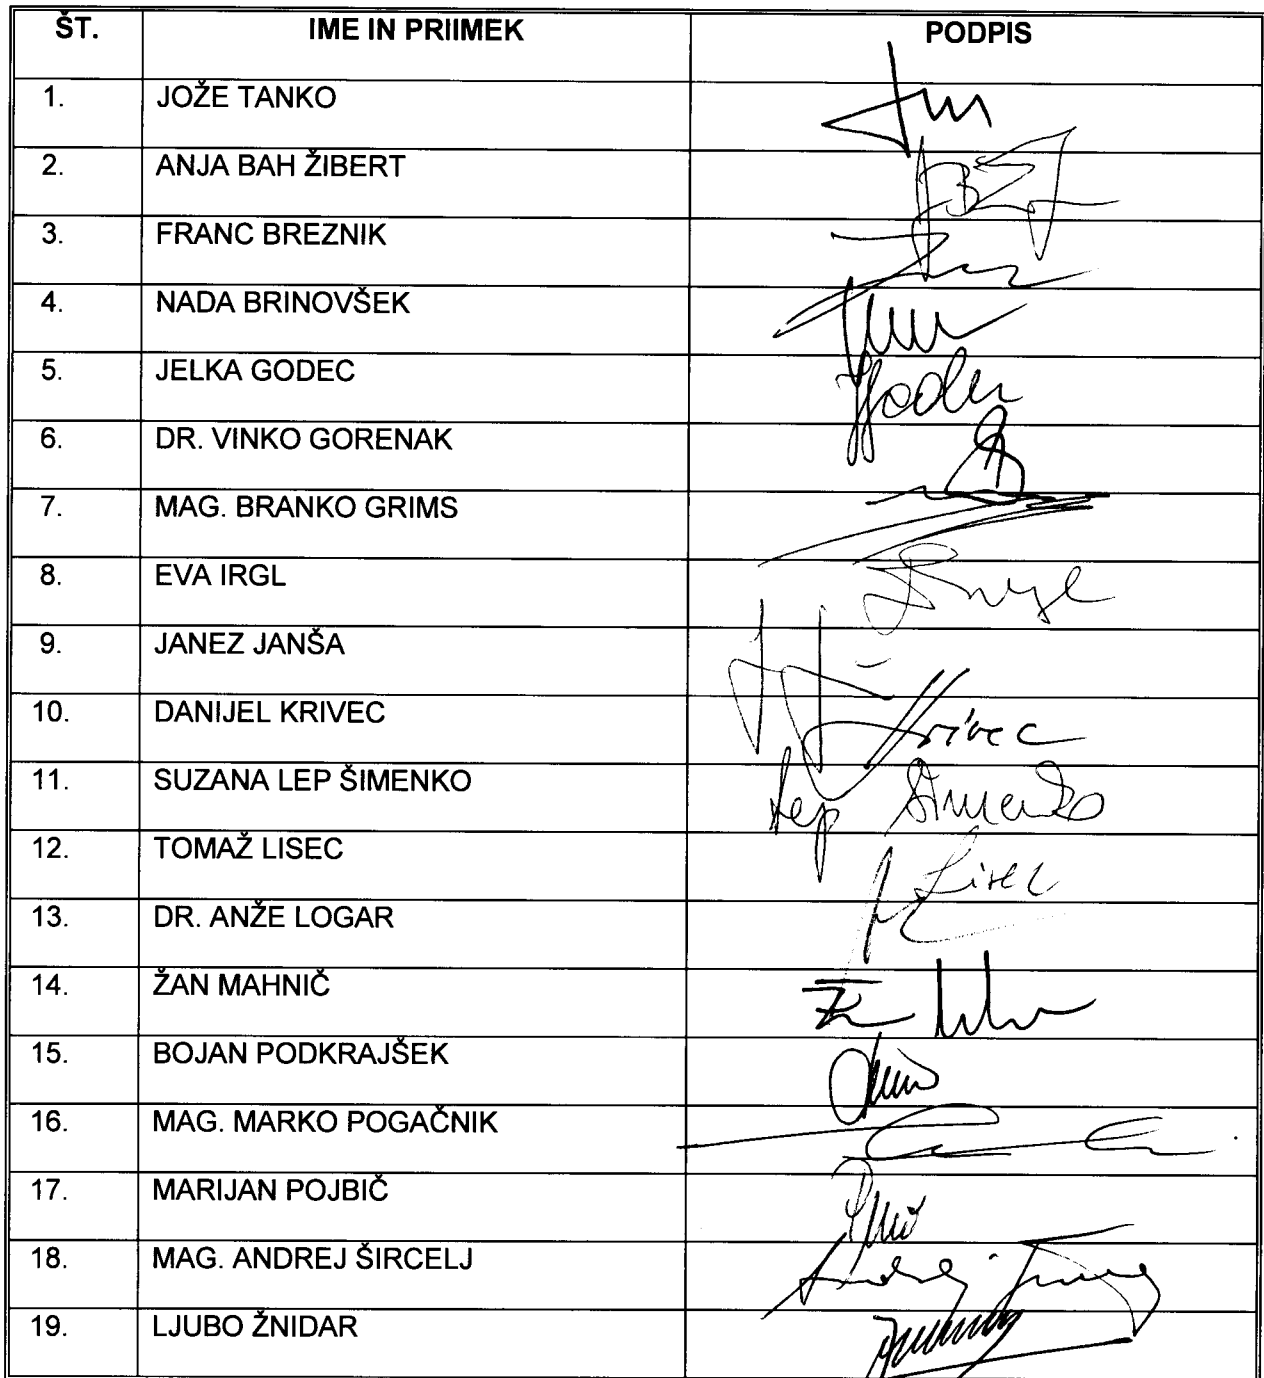 ŠT. IME IN PRIIMEK PODPIS
1. JOŽE TANKO
2. ANJA BAH ŽIBERT
3. FRANC BREZNIK
4. NADA BRINOVŠEK
5. JELKA GODEC
6. DR. VINKO GORENAK
7. MAG. BRANKO GRIMS
8. EVA IRGL
9. JANEZ JANŠA
10. DANIJEL KRIVEC Krivec
11. SUZANA LEP ŠIMENKO Lep Šimenko
12. TOMAŽ LISEC Lisec
13. DR. ANŽE LOGAR
14. ŽAN MAHNIČ
15. BOJAN PODKRAJŠEK
16. MAG. MARKO POGAČNIK
17. MARIJAN POJBIČ
18. MAG. ANDREJ ŠIRCELJ Andrej
19. LJUBO ŽNIDAR